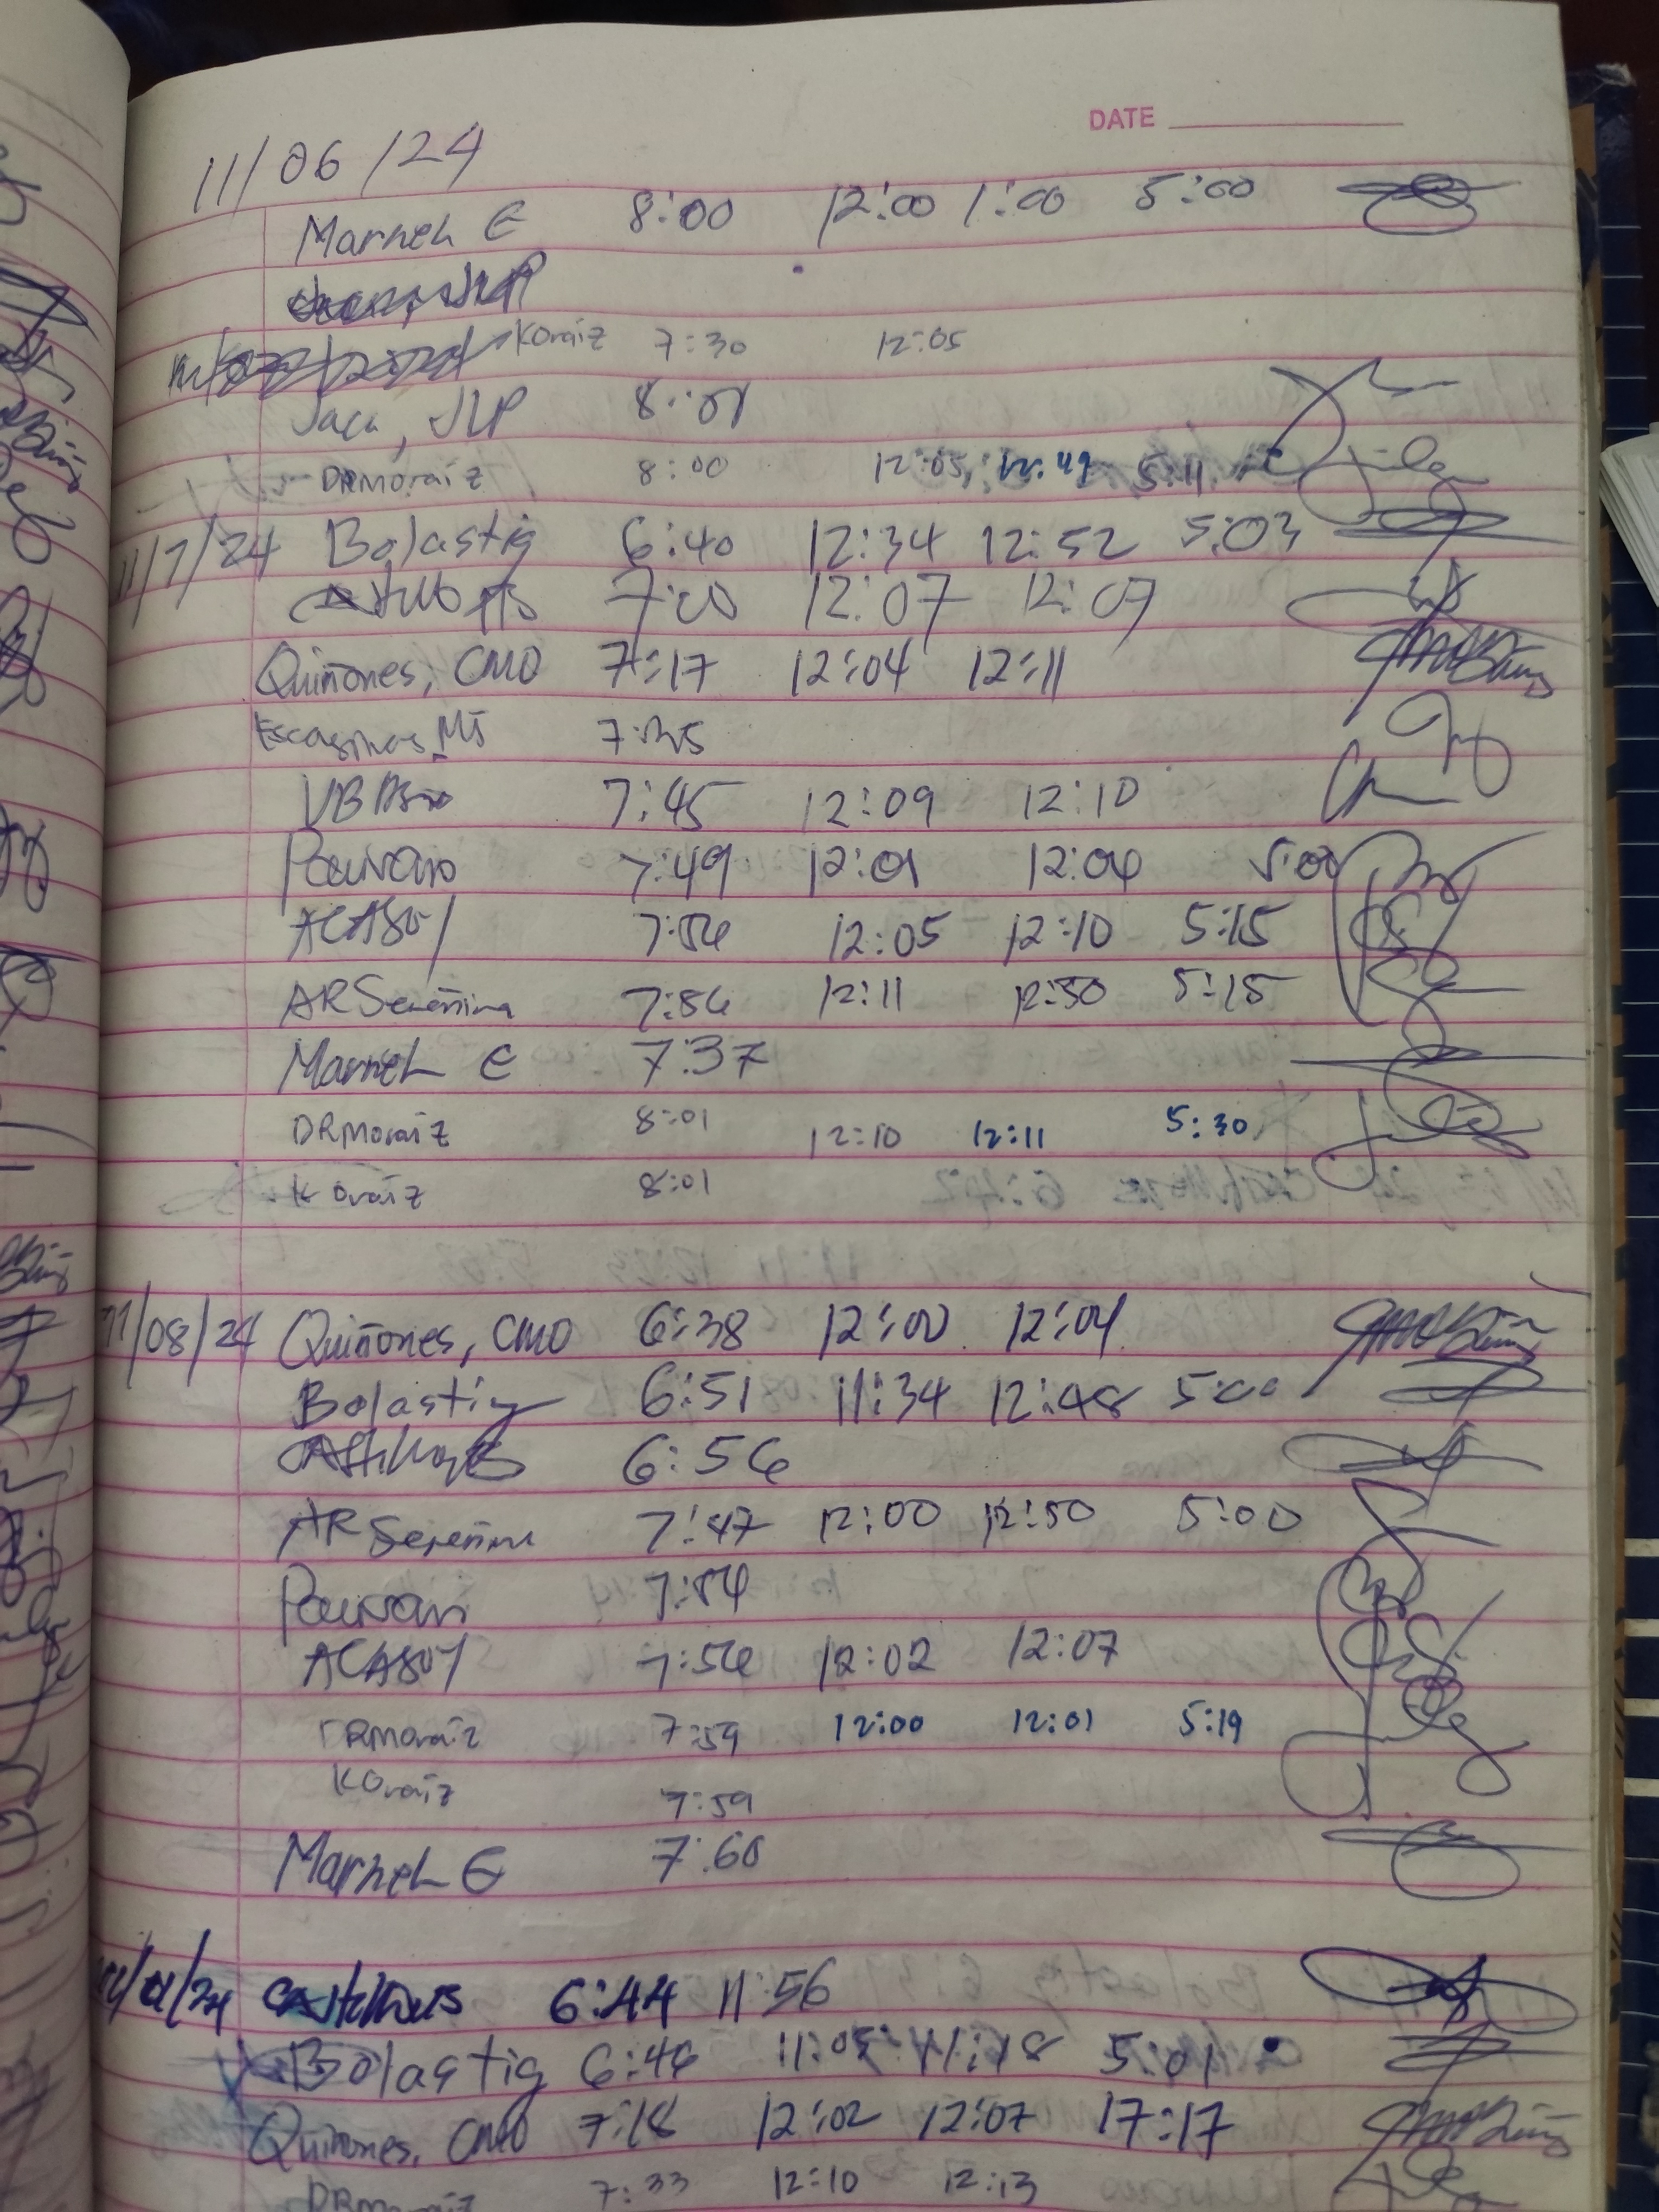 DATE
11/06/24
Marneh E 8:00 12:00 1:00 5:00
KOraiz 7:30 12:05
Jaca, JLP 8:01
DRMoraiz 8:00 12:05 12:49 5:11
11/7/24 Bolastig 6:40 12:34 12:52 5:03
7:20 12:07 12:07
Quiñones, CMO 7:17 12:04 12:11
Escasinas, MJ 7:35
VB 7:45 12:09 12:10
7:49 12:01 12:04 5:00
ACASOY 7:54 12:05 12:10 5:15
AR Sereñina 7:54 12:11 12:50 5:15
Marneh E 7:37
DRMoraiz 8:01 12:10 12:11 5:30
KOraiz 8:01
11/08/24 Quiñones, CMO 6:38 12:00 12:04
Bolastig 6:51 11:34 12:48 5:00
6:56
AR Sereñina 7:47 12:00 12:50 5:00
7:54
ACASOY 7:54 12:02 12:07
DRMoraiz 7:59 12:00 12:01 5:19
KOraiz 7:59
Marneh E 7:60
6:44 11:56
Bolastig 6:46 11:05 11:18 5:01
Quiñones, CMO 7:18 12:02 12:07 17:17
DRMoraiz 7:33 12:10 12:13